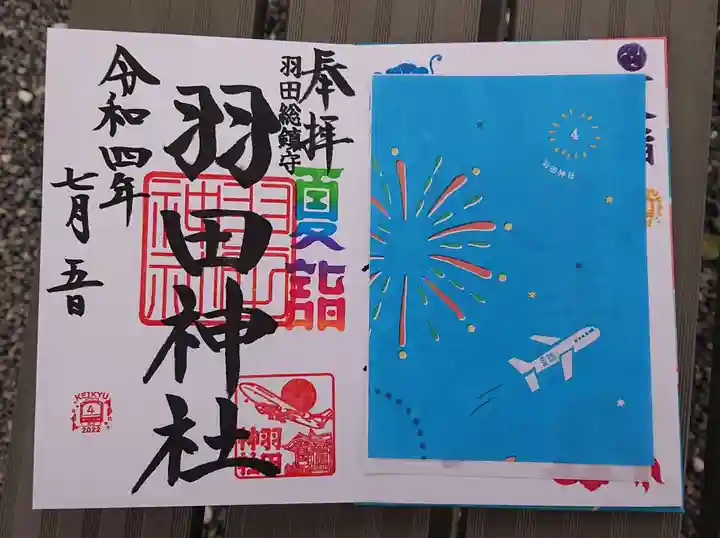 奉拝
羽田総鎮守
夏詣
羽田神社
令和四年
七月五日
羽田神社
KEIKYU
4
2022
4
羽田神社